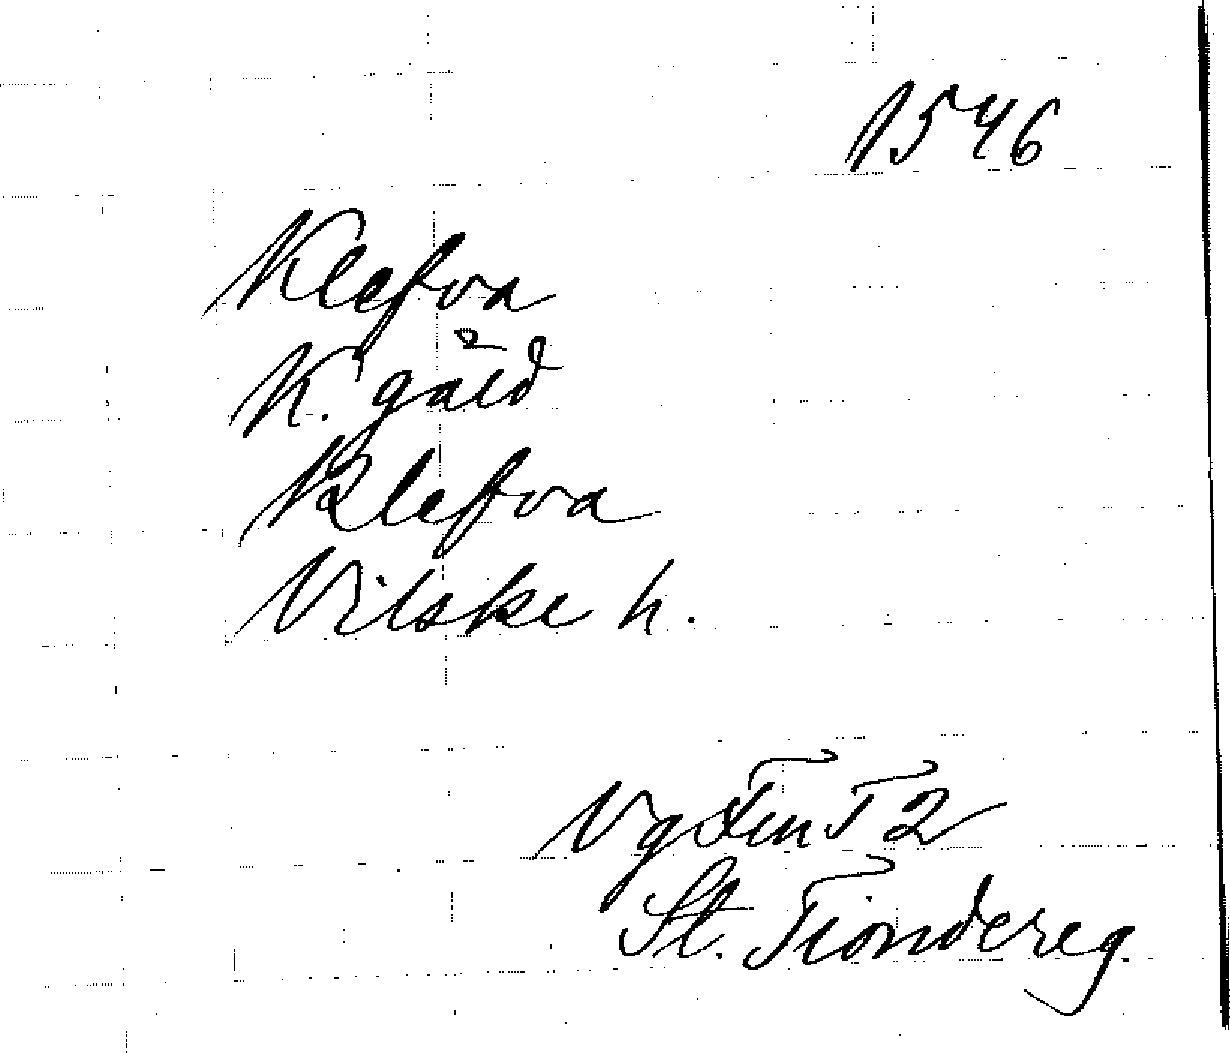 1546
Klefva
K. gäld
Klefva
Vilske h.
Vg Fem T 2
St. Tiondereg.